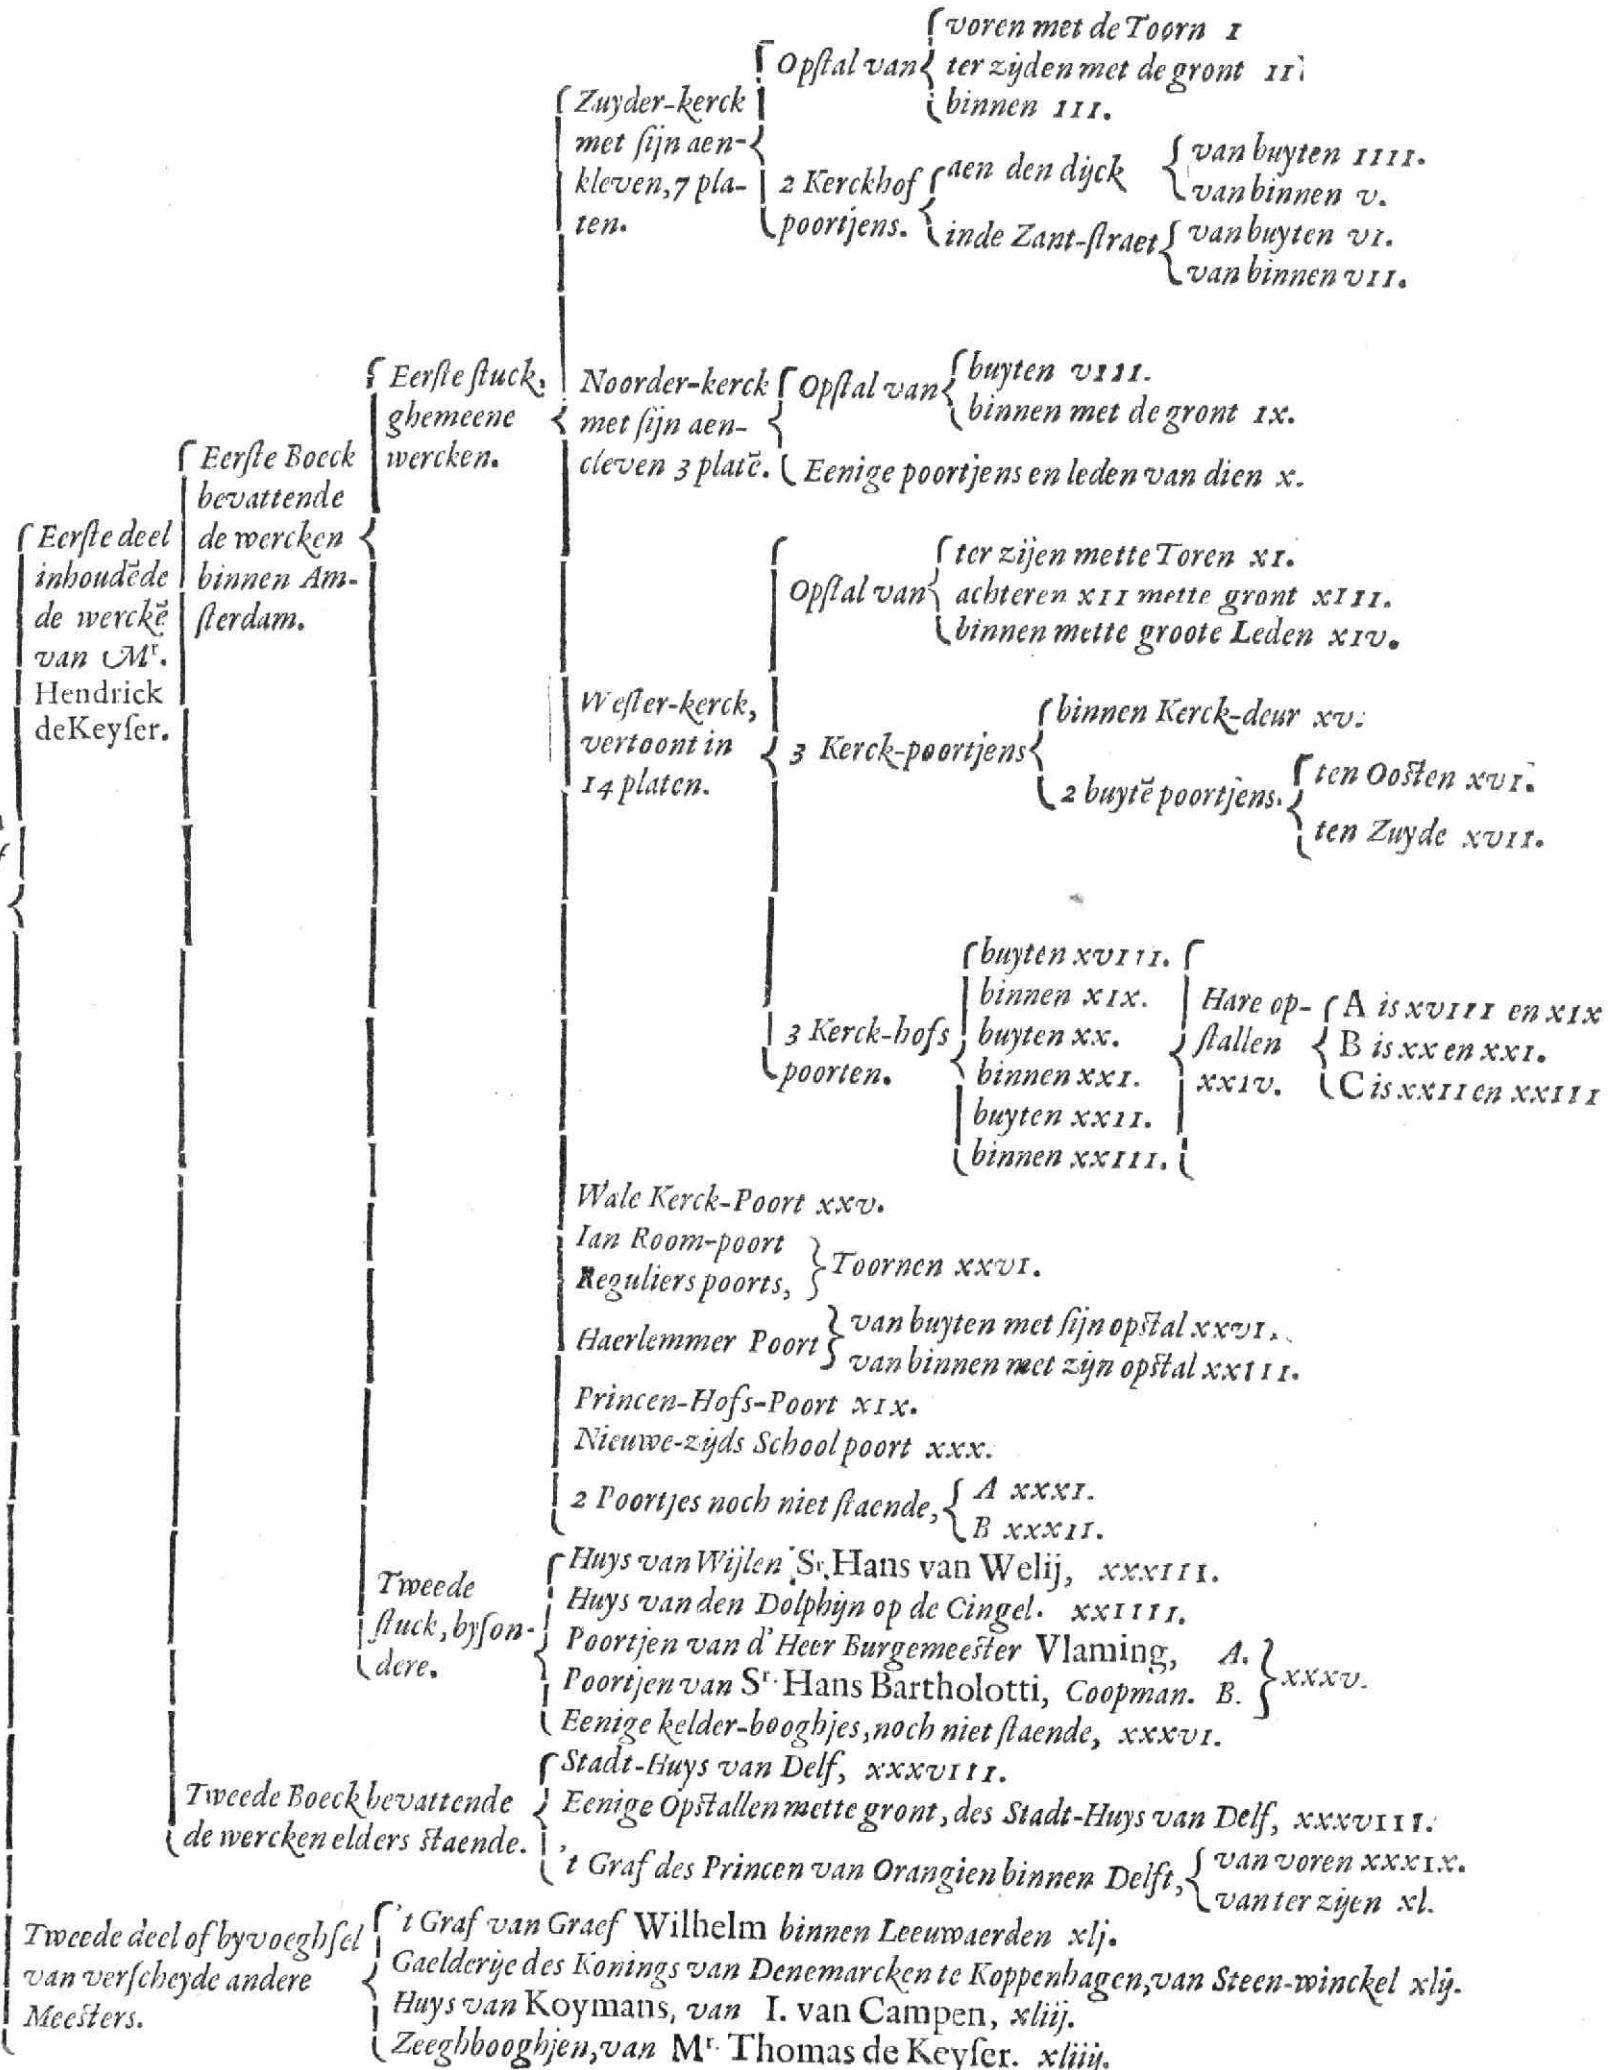 voren met de Toorn I
Opſtal van ter zijden met de gront II
binnen III.
Zuyder-kerck
met ſijn aen-
kleven, 7 pla-
ten.
2 Kerckhof
poortjens.
aen den dijck
van buyten IIII.
van binnen V.
inde Zant-ſtraet
van buyten VI.
van binnen VII.
Eerſte ſtuck,
ghemeene
wercken.
Noorder-kerck
met ſijn aen-
cleven 3 platē.
Opſtal van
buyten VIII.
binnen met de gront IX.
Eenige poortjens en leden van dien X.
Eerſte Boeck
bevattende
de wercken
binnen Am-
ſterdam.
Eerſte deel
inhoudēde
de werckē
van Mr.
Hendrick
de Keyſer.
Opſtal van
ter zijen mette Toren XI.
achteren XII mette gront XIII.
binnen mette groote Leden XIV.
Weſter-kerck,
vertoont in
14 platen.
3 Kerck-poortjens
binnen Kerck-deur XV.
2 buytē poortjens.
ten Ooſten XVI.
ten Zuyde XVII.
3 Kerck-hofs
poorten.
buyten XVIII.
binnen XIX.
buyten XX.
binnen XXI.
buyten XXII.
binnen XXIII.
Hare op-
ſtallen
XXIV.
A is XVIII en XIX
B is XX en XXI.
C is XXII en XXIII
Wale Kerck-Poort XXV.
Ian Room-poort
Reguliers poorts,
Toornen XXVI.
Haerlemmer Poort
van buyten met ſijn opſtal XXVI.
van binnen met zijn opſtal XXIII.
Princen-Hofs-Poort XIX.
Nieuwe-zijds School poort XXX.
2 Poortjes noch niet ſtaende,
A XXXI.
B XXXII.
Tweede
ſtuck, byſon-
dere.
Huys van Wijlen Sr. Hans van Welij, XXXIII.
Huys van den Dolphijn op de Cingel. XXIIII.
Poortjen van d' Heer Burgemeeſter Vlaming, A.
Poortjen van Sr. Hans Bartholotti, Coopman. B.
XXXV.
Eenige kelder-booghjes, noch niet ſtaende, XXXVI.
Tweede Boeck bevattende
de wercken elders ſtaende.
Stadt-Huys van Delf, XXXVIII.
Eenige Opſtallen mette gront, des Stadt-Huys van Delf, XXXVIII.
't Graf des Princen van Orangien binnen Delft,
van voren XXXIX.
van ter zijen xl.
Tweede deel of byvoeghſel
van verſcheyde andere
Meeſters.
't Graf van Graef Wilhelm binnen Leeuwaerden xlj.
Gaelderije des Konings van Denemarcken te Koppenhagen, van Steen-winckel xlij.
Huys van Koymans, van I. van Campen, xliij.
Zeeghbooghjen, van Mr. Thomas de Keyſer. xliiij.